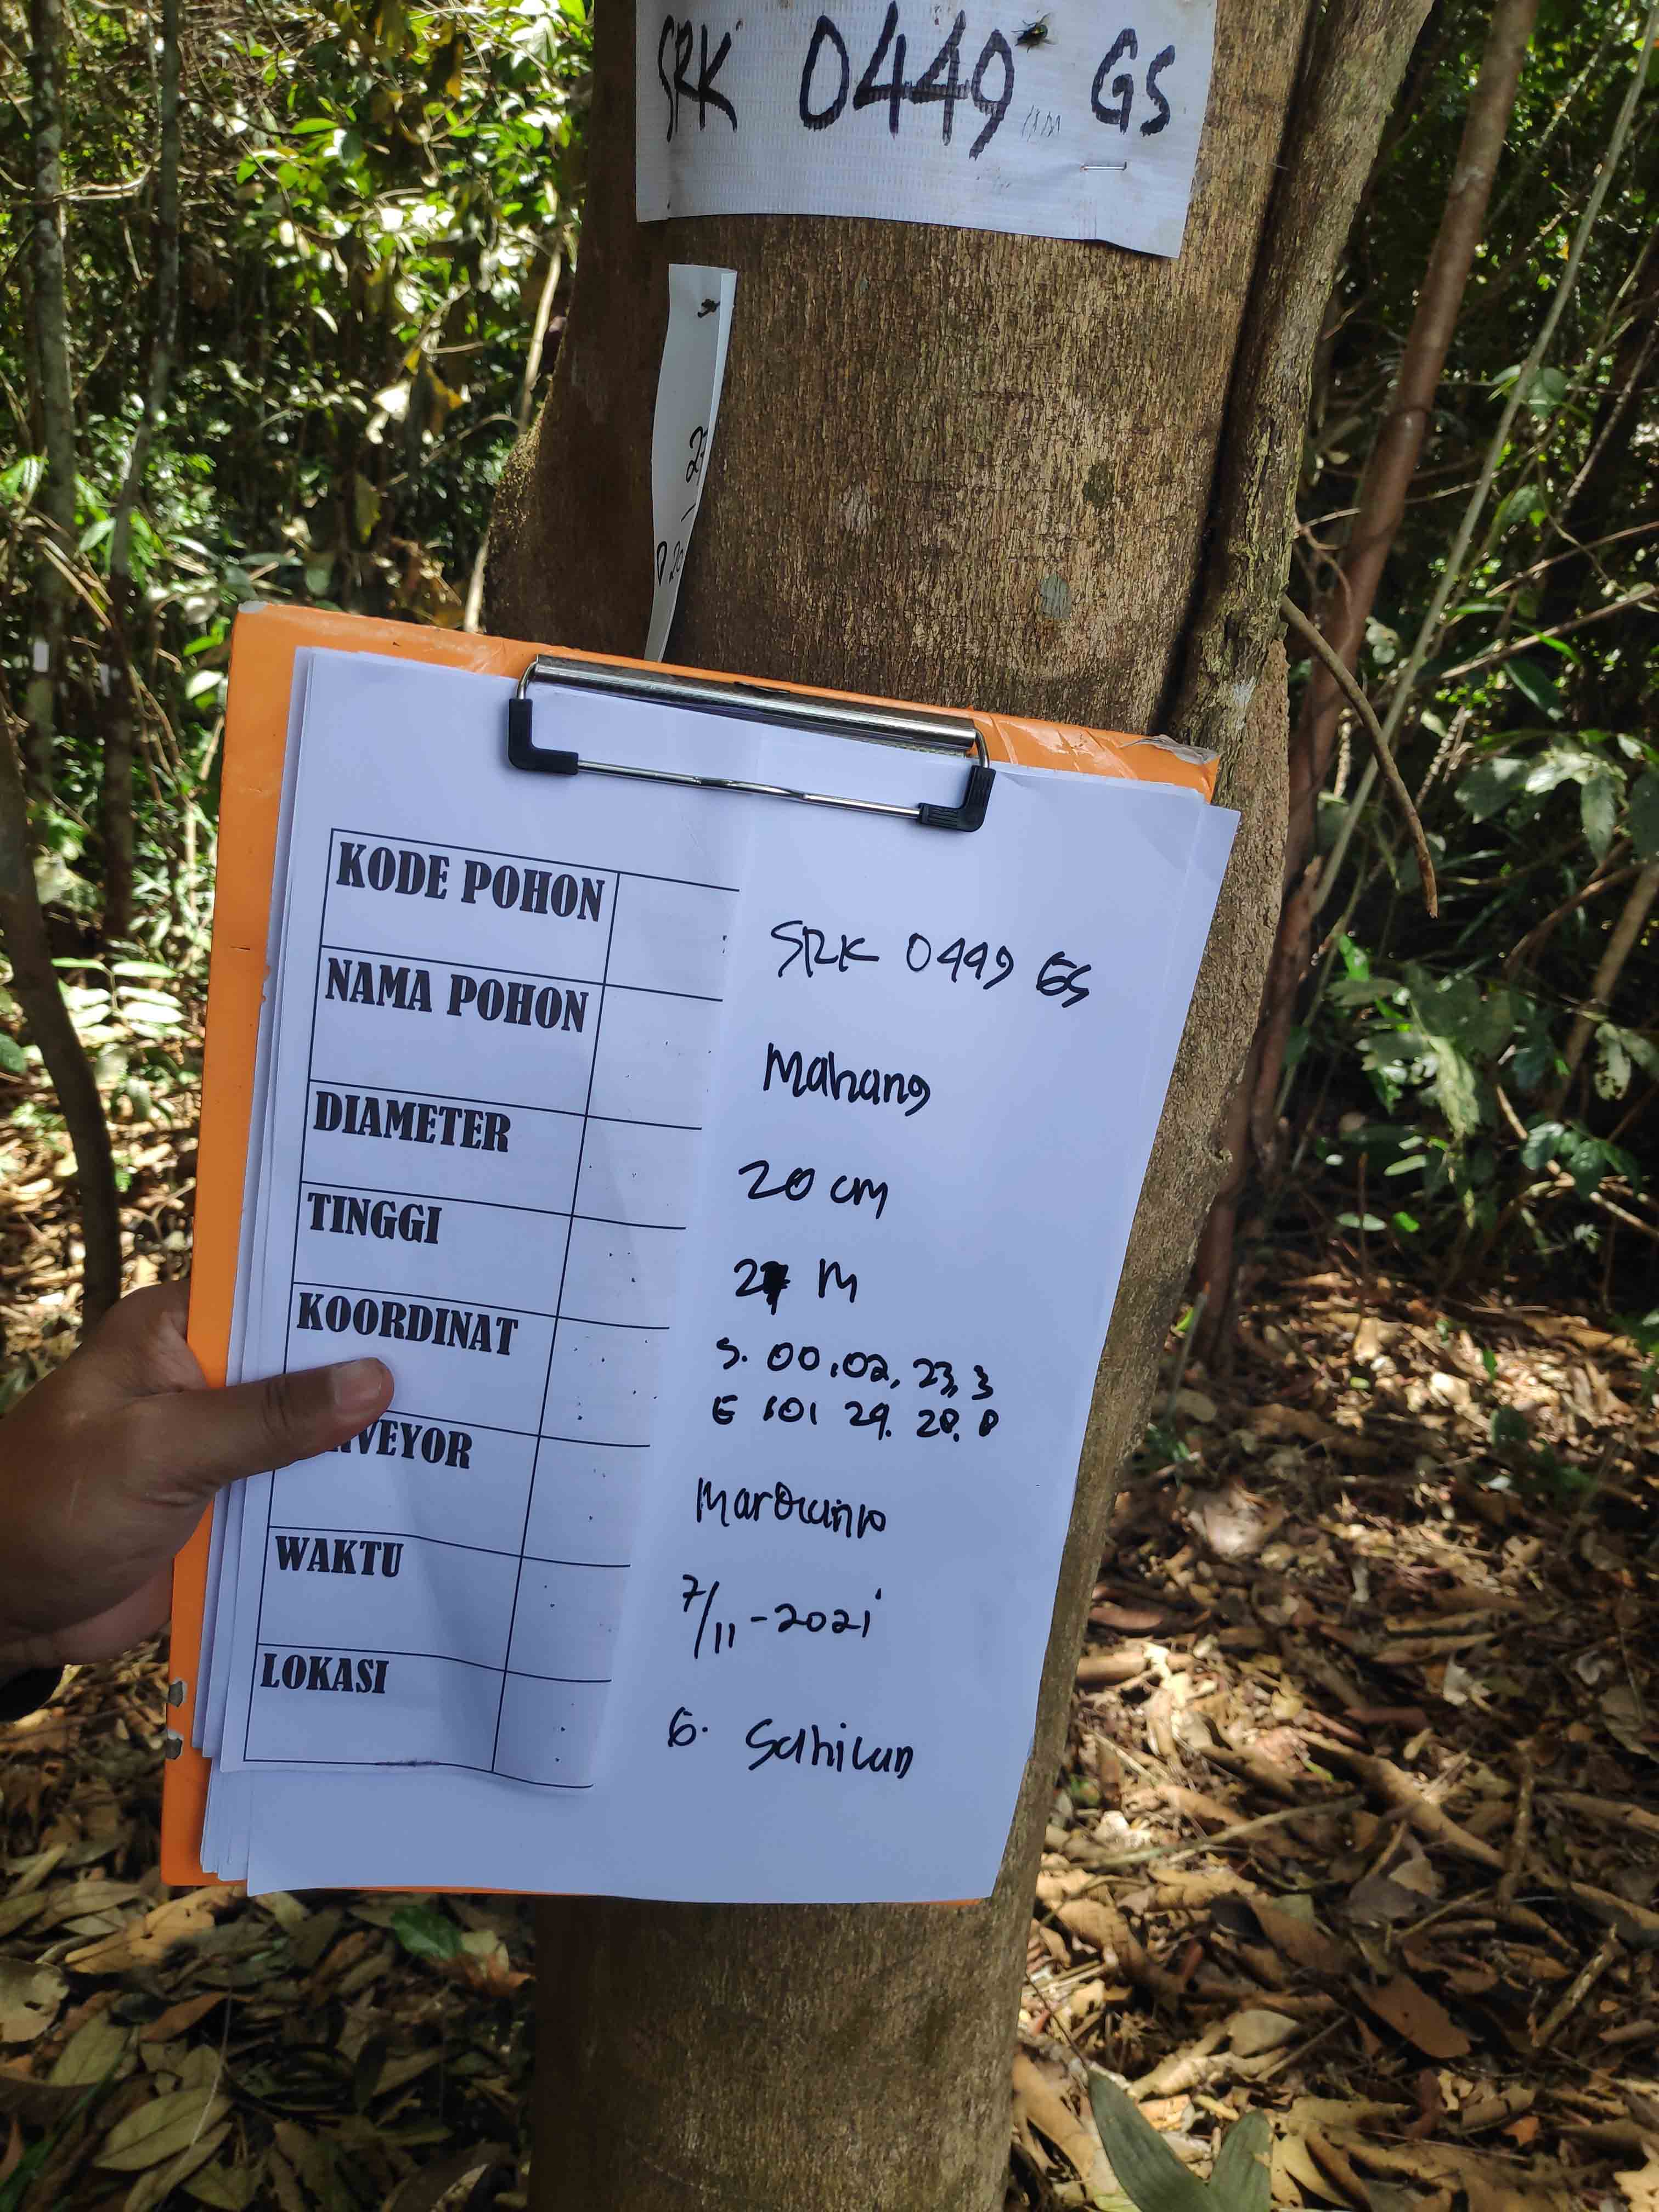 SRK 0449 GS
KODE POHON
SRK 0449 GS
NAMA POHON
Mahang
DIAMETER
20 cm
TINGGI
M
KOORDINAT
S. 00.02, 23,3
E 101 29. 20.
VEYOR
WAKTU
7/11-2021
LOKASI
G. Sahilan